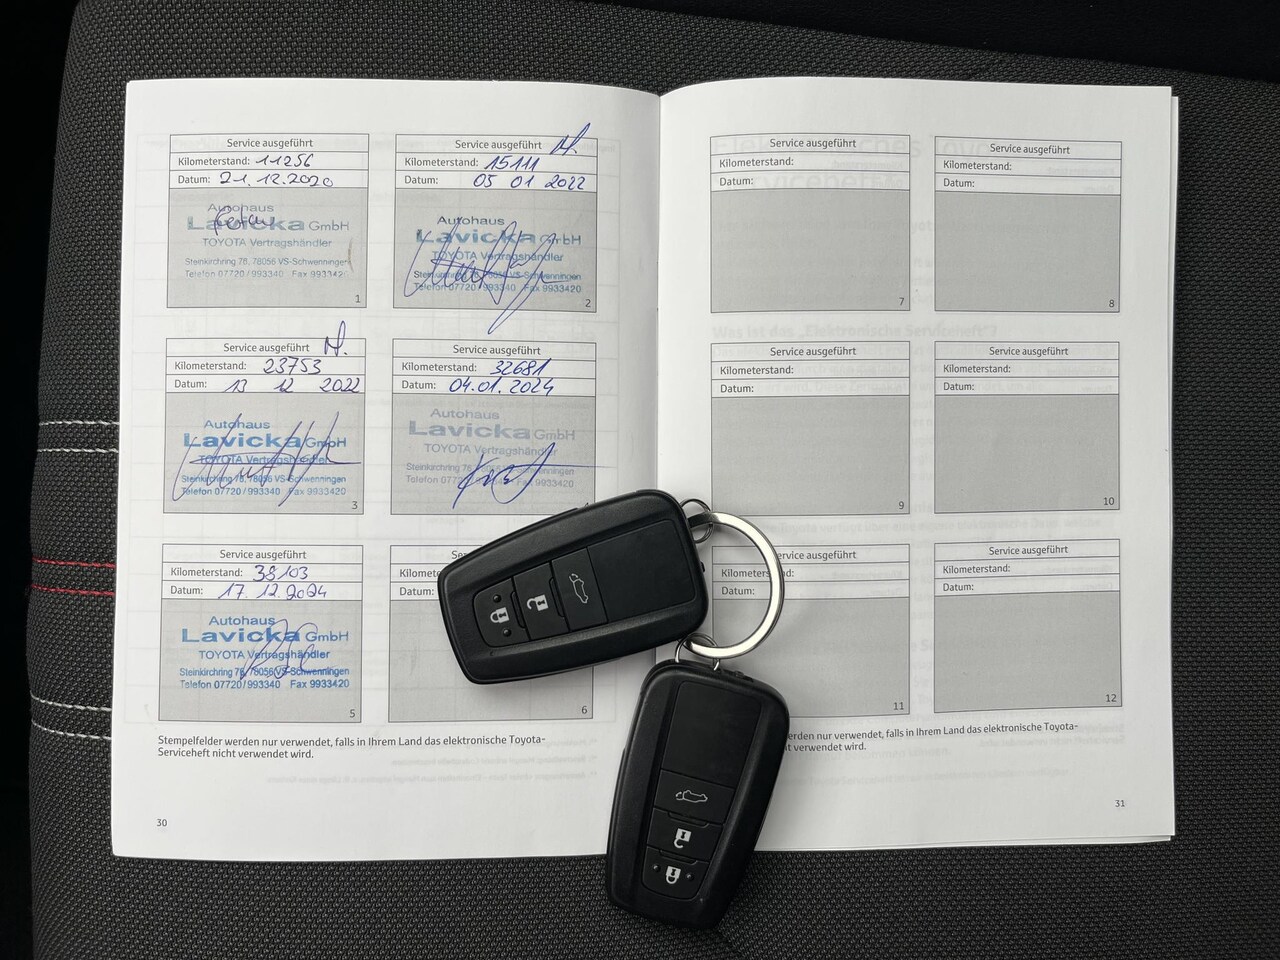 Service ausgeführt
Kilometerstand: 11256
Datum: 21.12.2020
Autohaus
Lavicka GmbH
TOYOTA Vertragshändler
Steinkirchring 78, 78056 VS-Schwenningen
Telefon 07720/993340 Fax 9933420
1
Service ausgeführt
Kilometerstand: 15111
Datum: 05 01 2022
Autohaus
Lavicka GmbH
TOYOTA Vertragshändler
Steinkirchring 78, 78056 VS-Schwenningen
Telefon 07720/993340 Fax 9933420
2
Service ausgeführt
Kilometerstand: 23753
Datum: 13 12 2022
Autohaus
Lavicka GmbH
TOYOTA Vertragshändler
Steinkirchring 78, 78056 VS-Schwenningen
Telefon 07720/993340 Fax 9933420
3
Service ausgeführt
Kilometerstand: 32681
Datum: 04.01.2024
Autohaus
Lavicka GmbH
TOYOTA Vertragshändler
Steinkirchring 78, 78056 VS-Schwenningen
Telefon 07720/993340 Fax 9933420
Service ausgeführt
Kilometerstand: 38103
Datum: 17.12.2024
Autohaus
Lavicka GmbH
TOYOTA Vertragshändler
Steinkirchring 78, 78056 VS-Schwenningen
Telefon 07720/993340 Fax 9933420
5
Datum:
6
Stempelfelder werden nur verwendet, falls in Ihrem Land das elektronische Toyota-
Serviceheft nicht verwendet wird.
30
Service ausgeführt
Kilometerstand:
Datum:
7
Service ausgeführt
Kilometerstand:
Datum:
8
Service ausgeführt
Kilometerstand:
Datum:
9
Service ausgeführt
Kilometerstand:
Datum:
10
ausgeführt
Kilometerstand:
Datum:
11
Service ausgeführt
Kilometerstand:
Datum:
12
werden nur verwendet, falls in Ihrem Land das elektronische Toyota-
verwendet wird.
31